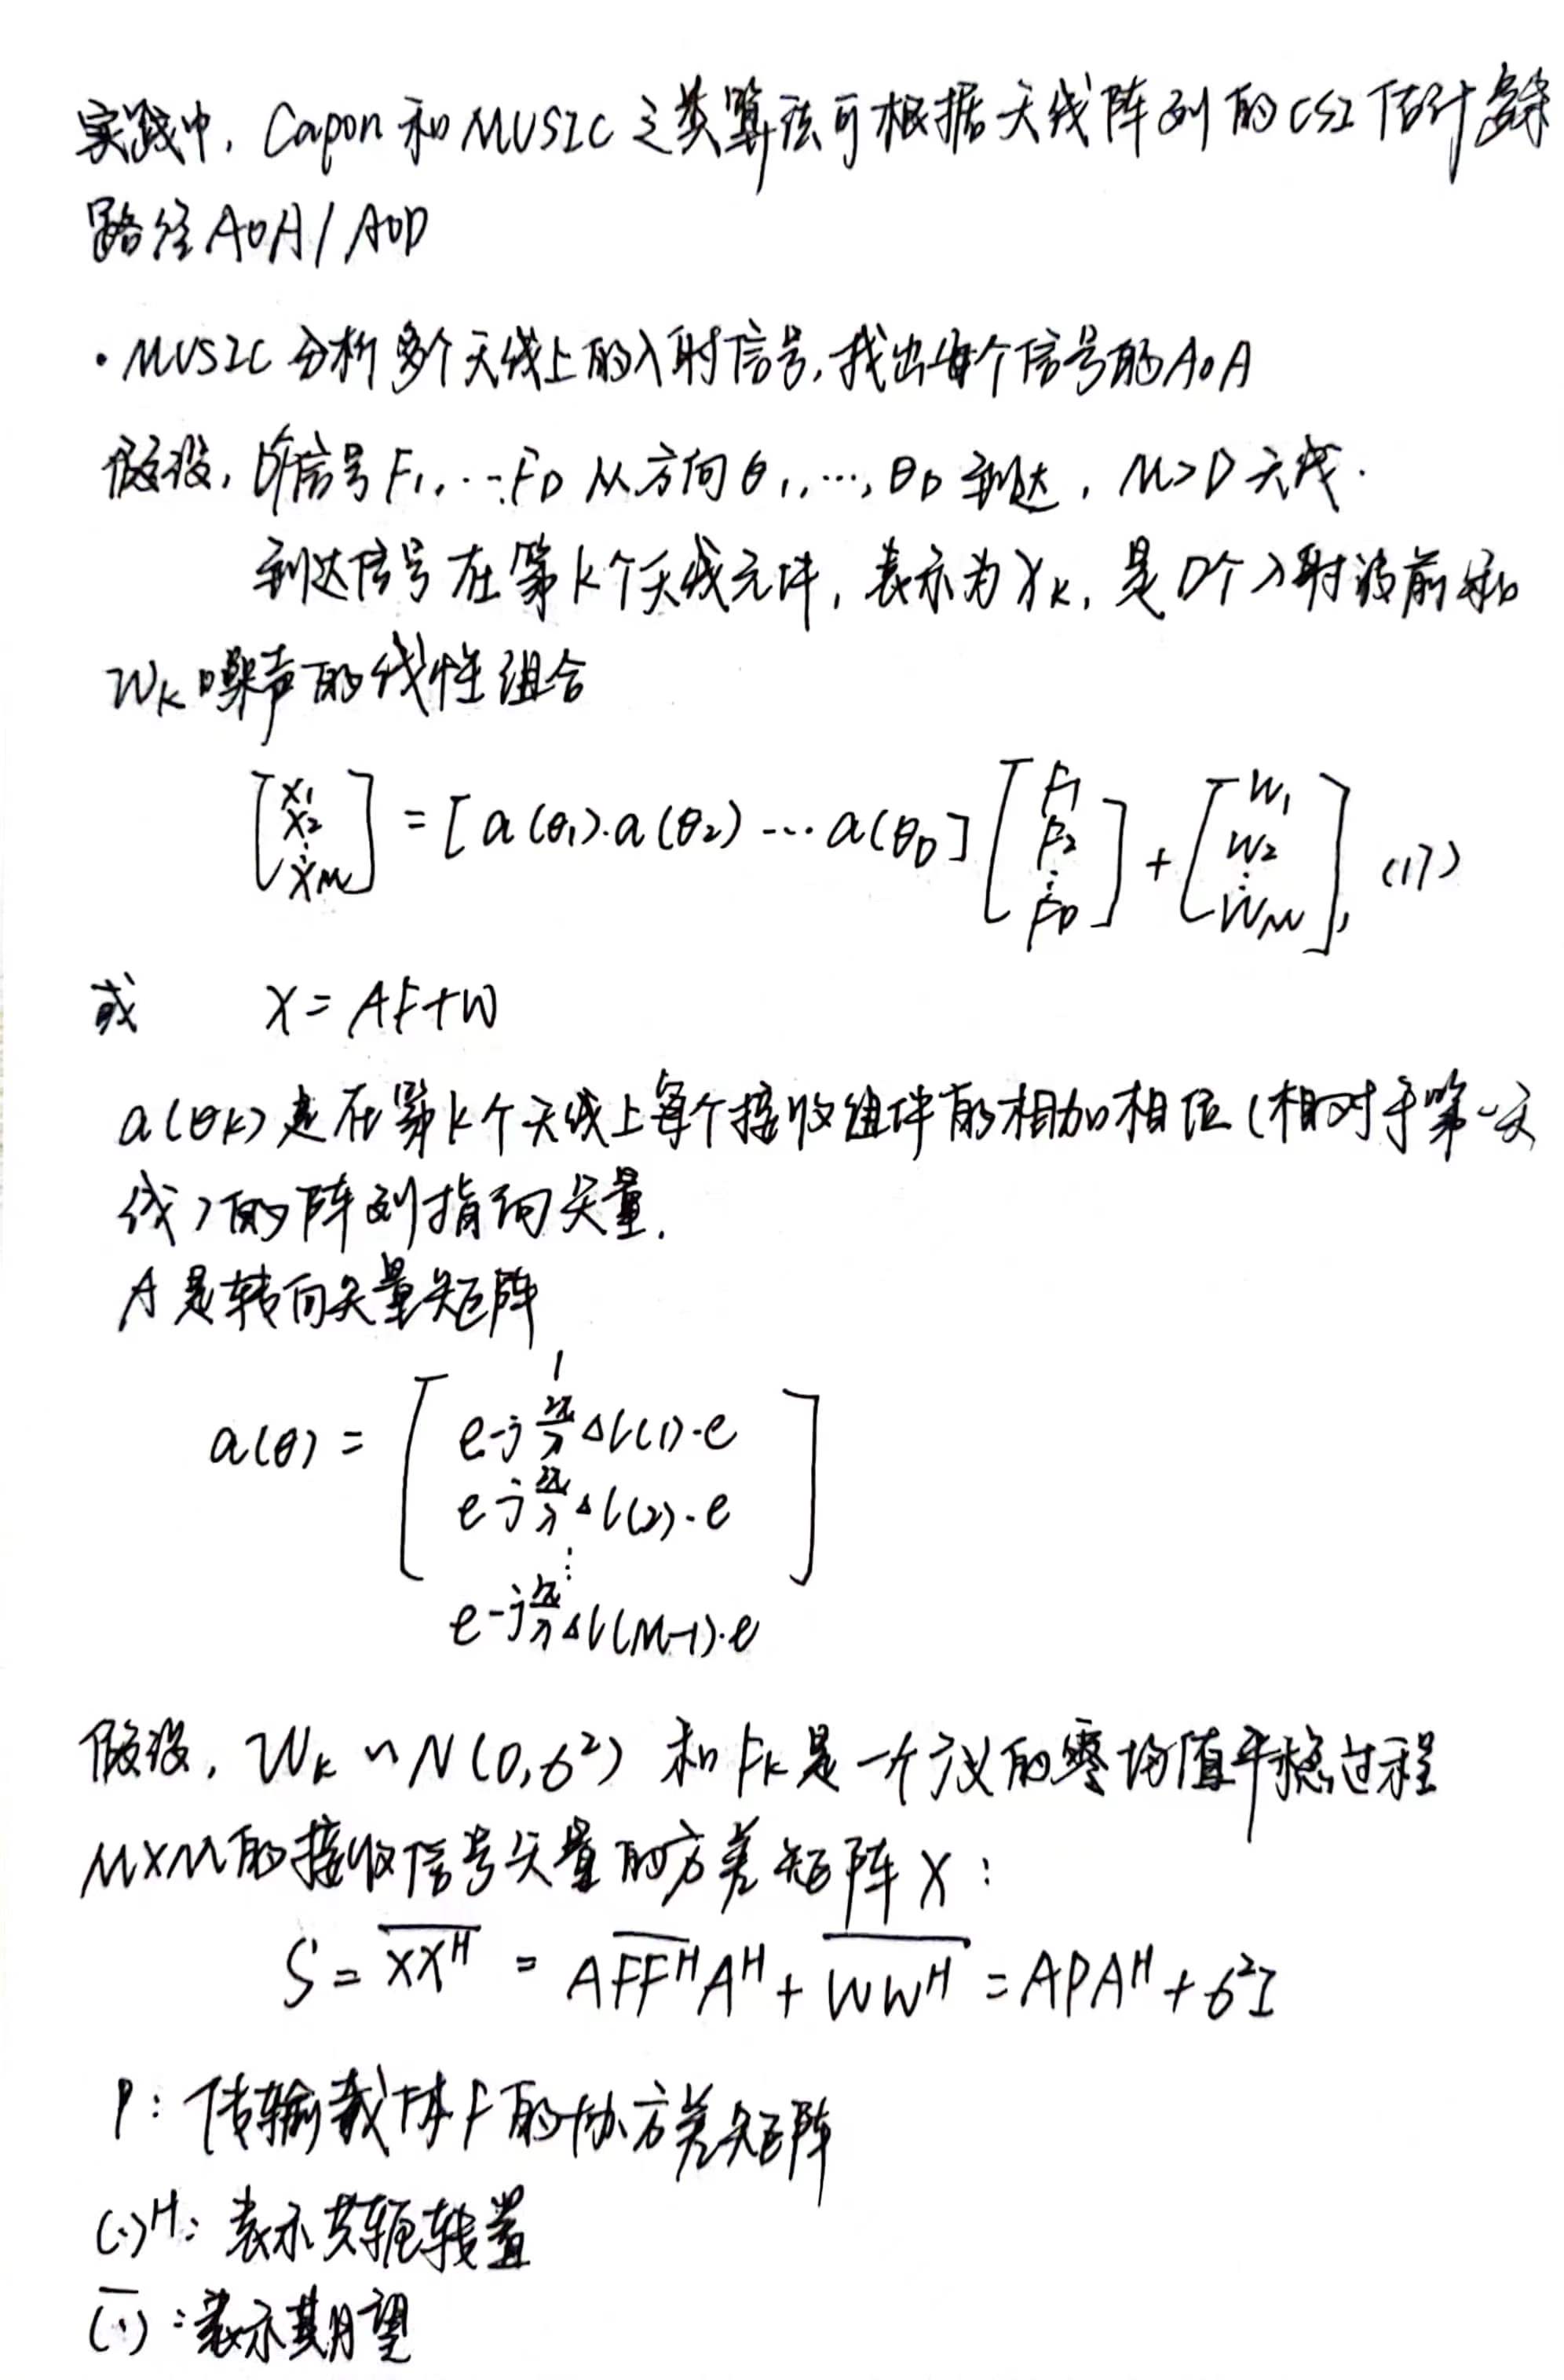 实践中, Capon和MUSIC之类算法可根据天线阵列的CSI估计多条
路径AoA/AoD
·MUSIC分析多个天线上的入射信号,找出每个信号的AoA
假设, D个信号F1,…,FD从方向θ1,…,θD到达, M>D天线.
到达信号在第k个天线元件,表示为Xk, 是D个入射波前和
Wk噪声的线性组合
[X1 X2 ⋮ XM] = [a(θ1).a(θ2)…a(θD] [F1 F2 ⋮ FD] + [W1 W2 ⋮ WM], (17)
或 X = AF+W
a(θk)是在第k个天线上每个接收组件的相加相位(相对于第一天
线)的阵列指向矢量.
A是转向矢量矩阵
a(θ) = [1
e-j 2π/λ Δl(1)·e
e-j 2π/λ Δl(2)·e
⋮]
e-j 2π/λ Δl(M-1)·e
假设, Wk ~ N(0,σ²) 和Fk是一个广义的零均值平稳过程
M×M的接收信号矢量的方差矩阵X:
S = \overline{XX^H} = A\overline{FF^H}A^H + \overline{WW^H} = APA^H + σ²I
P: 传输载体F的协方差矩阵
(·)^H: 表示共轭转置
\overline{(·)}: 表示期望